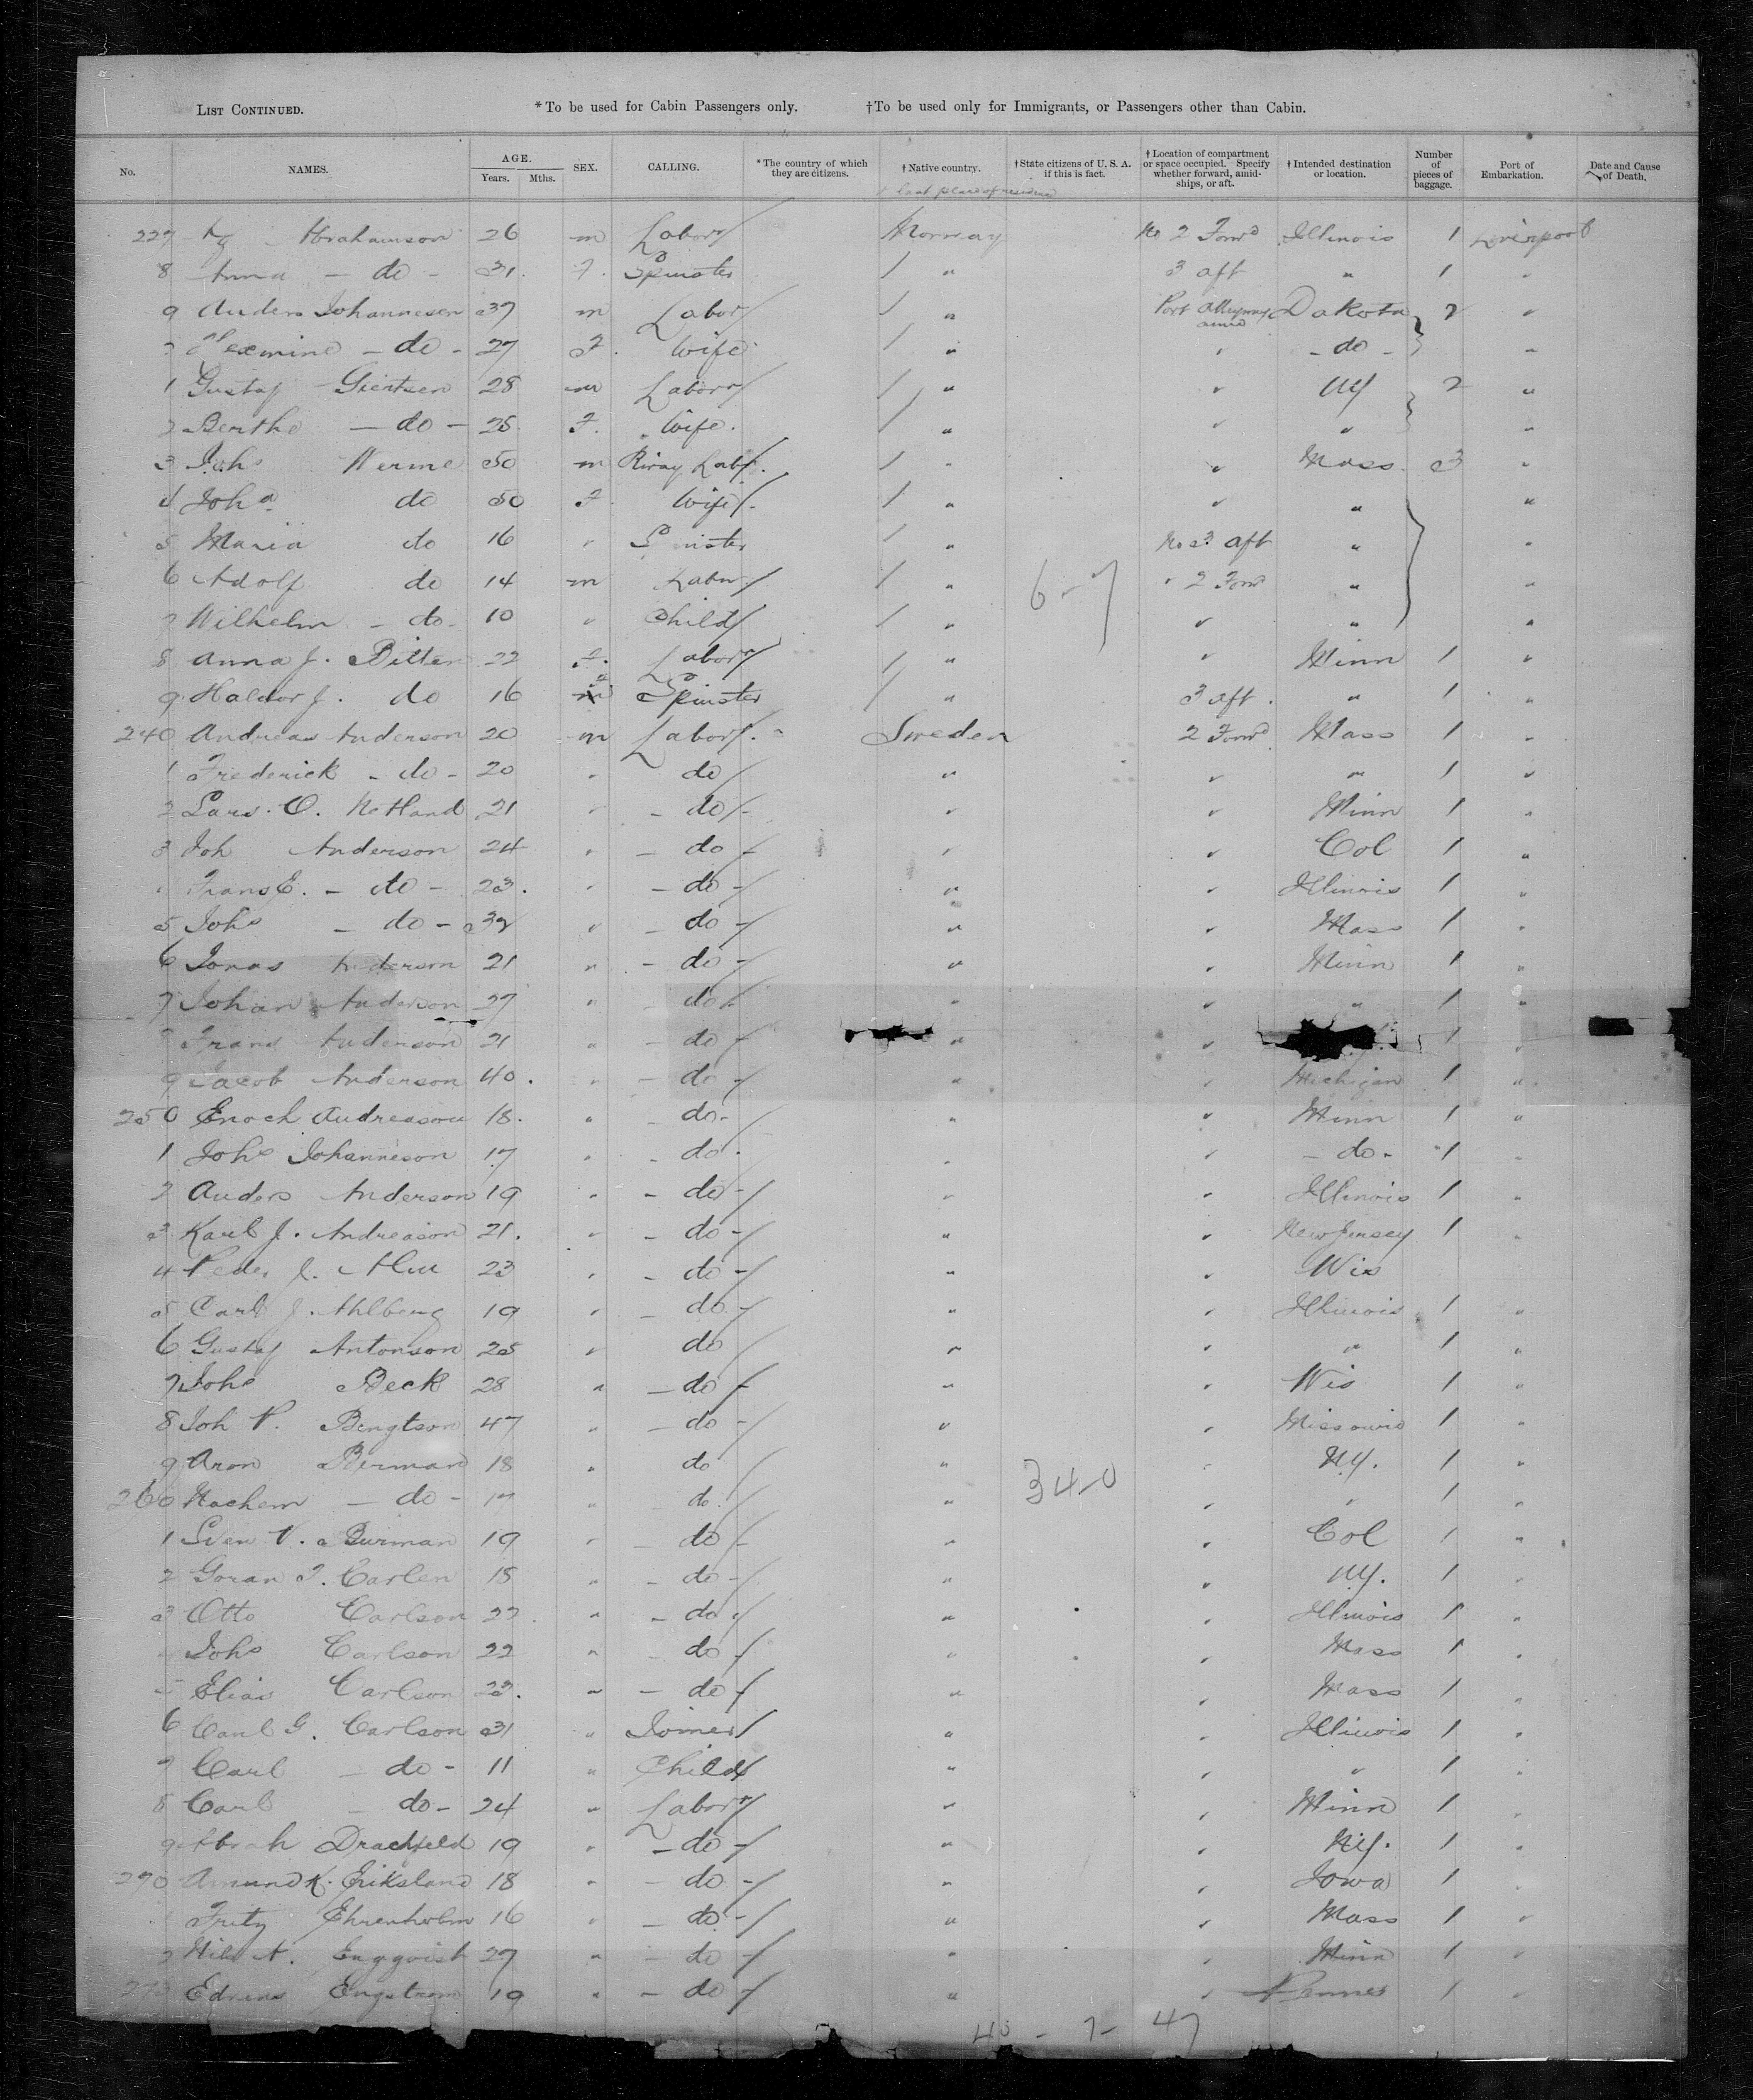 LIST CONTINUED. *To be used for Cabin Passengers only. †To be used only for Immigrants, or Passengers other than Cabin.
No. NAMES. AGE. Years. Mths. SEX. CALLING. *The country of which they are citizens. †Native country. †State citizens of U. S. A. if this is fact. †Location of compartment or space occupied. Specify whether forward, amidships, or aft. †Intended destination or location. Number of pieces of baggage. Port of Embarkation. Date and Cause of Death.
& last place of residence
227 Abrahamson 26 m Labor Norway No 2 Forwd Illinois 1 Liverpool
8 Anna - do - 31. f. Spinster / " 3 aft " 1 "
9 Anders Johannesen 37 m Labor / " Port Alleyway amid Dakota 2 "
- do - 27 f. Wife / " " - do - "
1 Gustaf 28 m Labor / " " NY 2 "
2 Berthe - do - 25. f. Wife. / " " " "
3 Johs Werme 50 m Rway Labr. / " " Mass 3 "
4 Joha do 50 f. Wife / " " " "
5 Maria do 16 " Spinster / " No 3 aft " "
6 Adolf do 14 m Labr / " 6-7 " 2 Forwd " "
7 Wilhelm - do - 10 " Child / " " " "
8 Anna J. Bitter 22 f. Labor / " " Minn 1 "
9 Haldor J. do 16 Spinster / " 3 aft. " 1 "
240 Andreas Anderson 20 m Labor Sweden 2 Forwd Mass 1 "
1 Frederick - do - 20 " do " " " 1 "
2 Lars O. Netland 21 " - do " " Minn 1 "
3 Joh Anderson 24 " - do - " " Col 1 "
Frans E. - do - 23. " - do - " " Illinois 1 "
5 Johs - do - 32 " - do - " " Mass 1 "
6 Jonas Anderson 21 " - do - " " Minn 1 "
7 Johan Anderson 27 " - do - " " " 1 "
Frans Anderson 21 " - do - " " 1 "
9 Jacob Anderson 40. " - do - " " Michigan 1 "
250 Enoch Andreason 18. " do - " " Minn 1 "
1 Johs Johanneson 17 " - do - " " - do - 1 "
2 Anders Anderson 19 " - do - " " Illinois 1 "
3 Karl J. Andreason 21. " - do - " " New Jersey 1 "
4 Peder J. 23 " - do - " " Wis
5 Carl J. Ahlberg 19 " - do - " " Illinois 1 "
6 Gustaf Antonson 25 " do " " " 1 "
7 Johs Beck 28 " - do - " " Wis 1 "
8 Joh P. Bengtson 47 " - do - " " Missourie 1 "
9 Aron Berman 18 " do " " N.Y. 1 "
260 Nachem - do - 17 " - do. " 34-0 " " 1 "
1 Sven P. Burman 19 " - do - " " Col 1 "
2 Goran Carlen 18 " - do - " " N.Y. 1 "
3 Otto Carlson 22. " - do " " Illinois 1 "
Johs Carlson 22 " - do - " " Mass 1 "
Elias Carlson 23. " - do - " " Mass 1 "
6 Carl G. Carlson 31 " Joiner " " Illinois 1 "
7 Carl - do - 11 " Child " " " 1 "
8 Carl - do - 24 " Labor " " Minn 1 "
9 Abrah Drachfeld 19 " - do - " " N.Y. 1 "
270 Amund K. Eriksland 18 " - do - " " Iowa 1 "
Fritz Ehrenholm 16 " - do - " " Mass 1 "
2 Enqqvist 27 " - do - " " Minn 1 "
273 Engstrom 19 " - do - " " 1 "
- 7 - 47